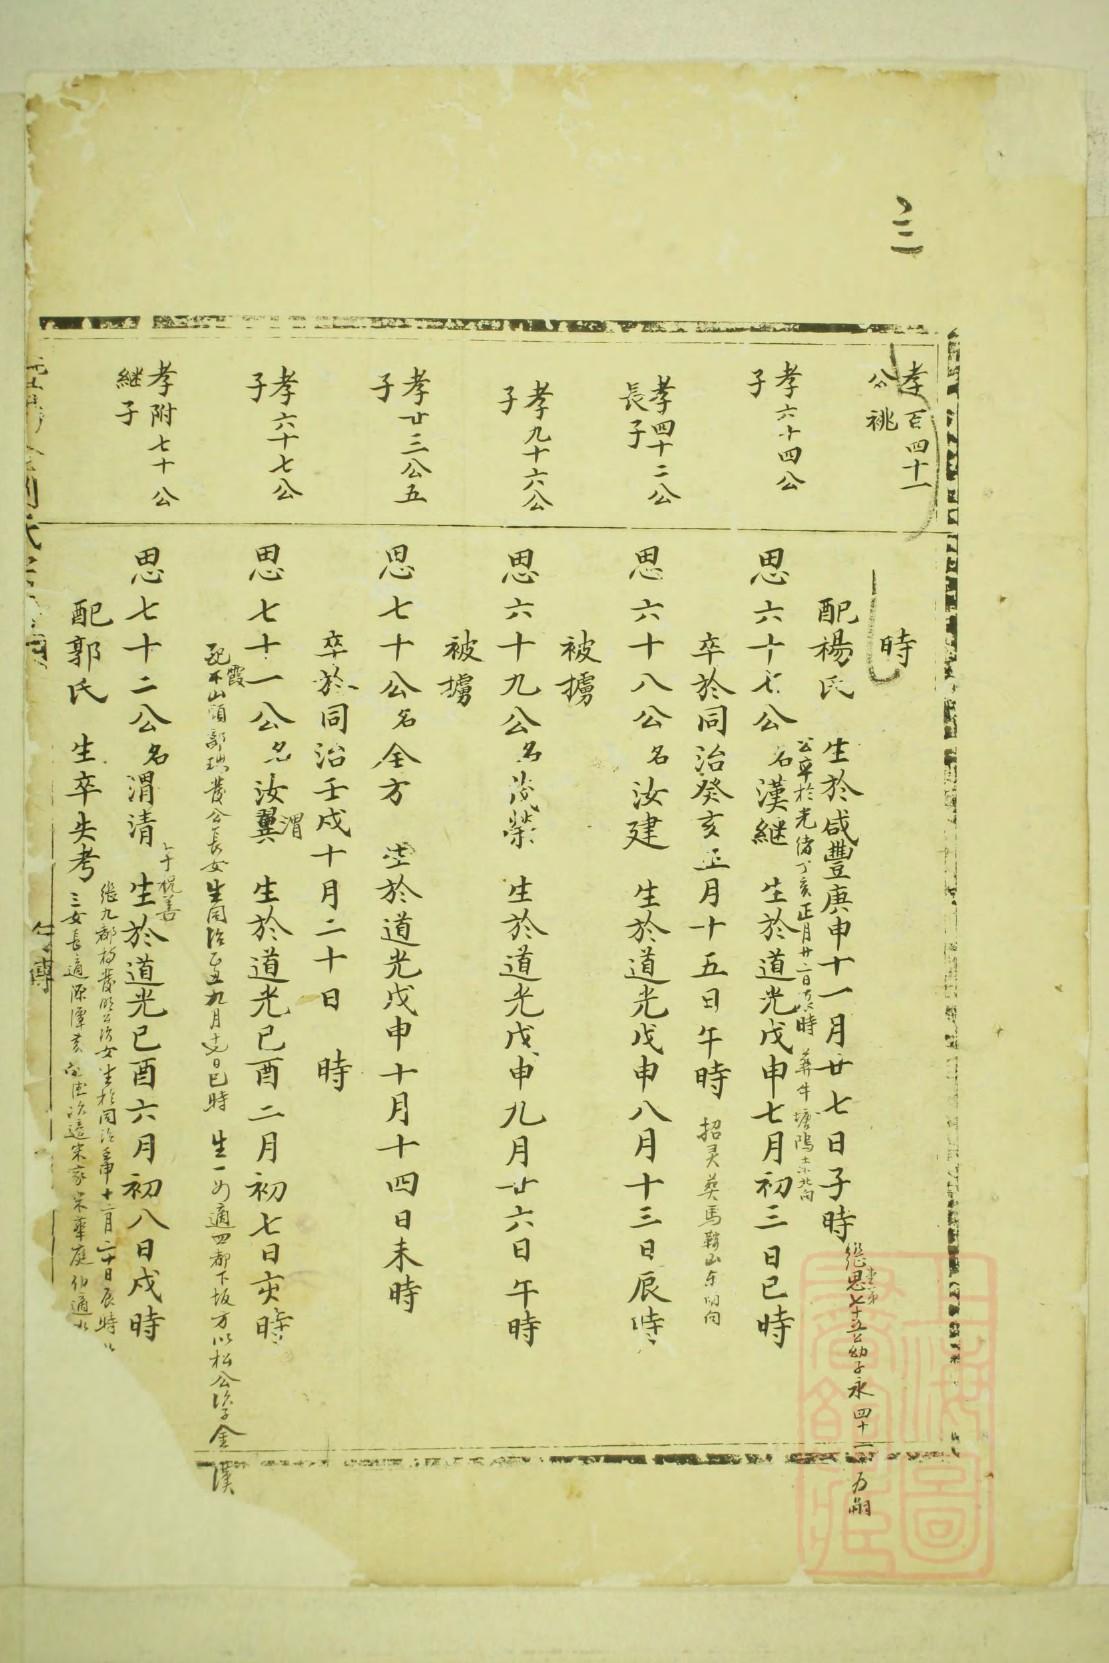 三
孝百四十一
公祧
時
配楊氏 生於咸豐庚申十一月廿七日子時
繼思七十五公幼子永四十一為嗣
公卒於光緒丁亥正月廿二日 時 葬牛塘 北向
孝六十四公
子
思六十七公名漢継 生於道光戊申七月初三日巳時
卒於同治癸亥正月十五日午時 招灵葵馬鞍山
孝四十二公
長子
思六十八公名汝建 生於道光戊申八月十三日辰時
被擄
孝九十六公
子
思六十九公名茂榮 生於道光戊申九月廿六日午時
被擄
孝廿三公五
子
思七十公名全方 生於道光戊申十月十四日未時
卒於同治壬戌十月二十日 時
孝六十七公
子
思七十一公名汝翼 渭 生於道光己酉二月初七日亥時
配 霞山頭 公長女生同治乙丑九月 日巳時 生一女適四都下坂方以松公 子金漢
孝附七十公
継子
思七十二公名渭清 生於道光己酉六月初八日戌時
継九都 公次女生於同治壬申十二月二十日辰時
配郭氏 生卒失考 三女長適源潭 次適宋家宋華庭